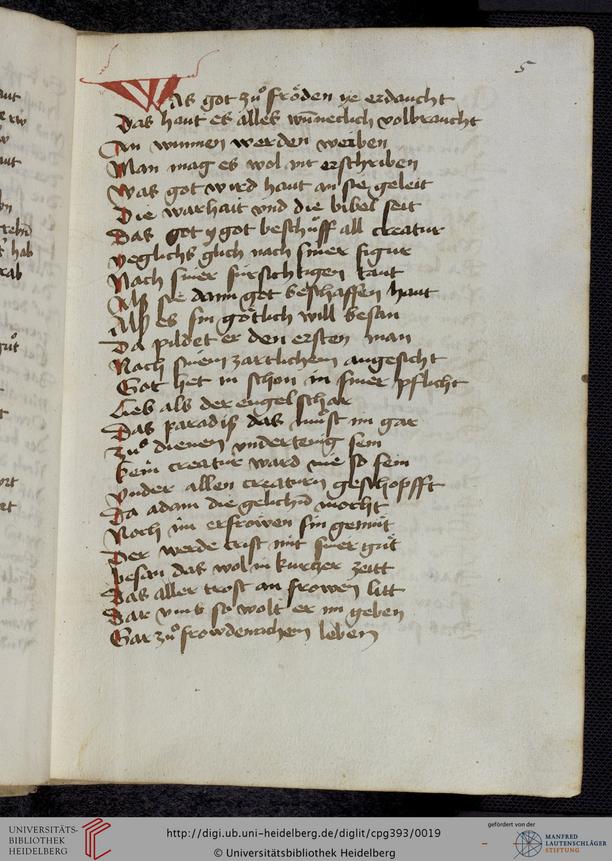 5
Was got zuͦ fröden ye erdaucht
Das haut es alles wūneclich volbraucht
An winnen werden weiben
Man mag es wol nit erschriben
Was got wird haut an sie geleit
Die warhait vnd die bibel seit
Das got y got beschuͤff all creatur
yeglichs glich nach siner figur
Nach siner fürsichtigen
Als sie dann got beschaffen haut
Als es sin götlich will besan
Da pildet er den ersten man
Nach sinem zartlichem angesicht
Got het in schon in siner pflicht
Lieb als der engel schar
Das paradiß das muͤst im gar
zuͦ dienen vndertenig sein
kein creatur ward nie so fein
vnder allen creaturn geschopfft
Da adam die gelichn̄ mocht
Noch im erfrowen sin gemüt
Der werde crist mit siner güt
besan das wol in kurczer zeitt
Das aller trost an frowen litt
Dar vmb so wolt er im geben
Gar zuͦ frowdenrichem leben
UNIVERSITÄTS-
BIBLIOTHEK
HEIDELBERG
http://digi.ub.uni-heidelberg.de/diglit/cpg393/0019
© Universitätsbibliothek Heidelberg
gefördert von der
MANFRED
LAUTENSCHLÄGER
STIFTUNG